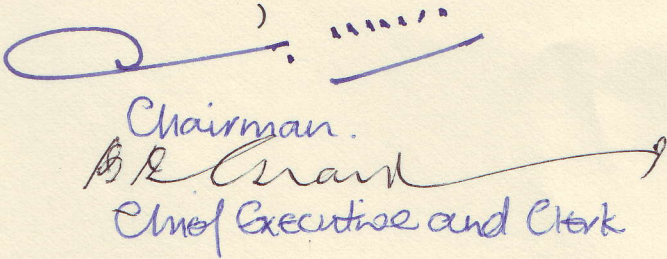 Chairman.
Chief Executive and Clerk